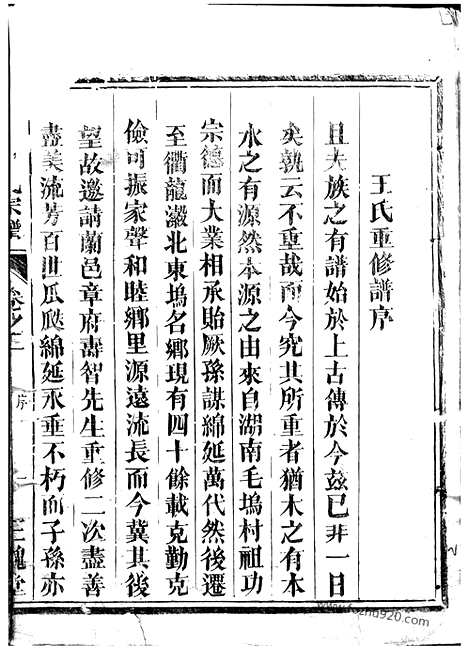 王氏重修譜序
且夫族之有譜始於上古傳於今茲已非一日
矣孰云不重哉而今究其所重者猶木之有本
水之有源然本源之由來自湖南毛塢村祖功
宗德而大業相承貽厥孫謀綿延萬代然後遷
至衢龍瀫北東塢名鄉現有四十餘載克勤克
儉可振家聲和睦鄉里源遠流長而今冀其後
望故邀請蘭邑章府壽智先生重修二次盡善
盡美流芳百世瓜瓞綿延永垂不朽而子孫亦
氏宗譜 卷之三 序 一 三槐堂